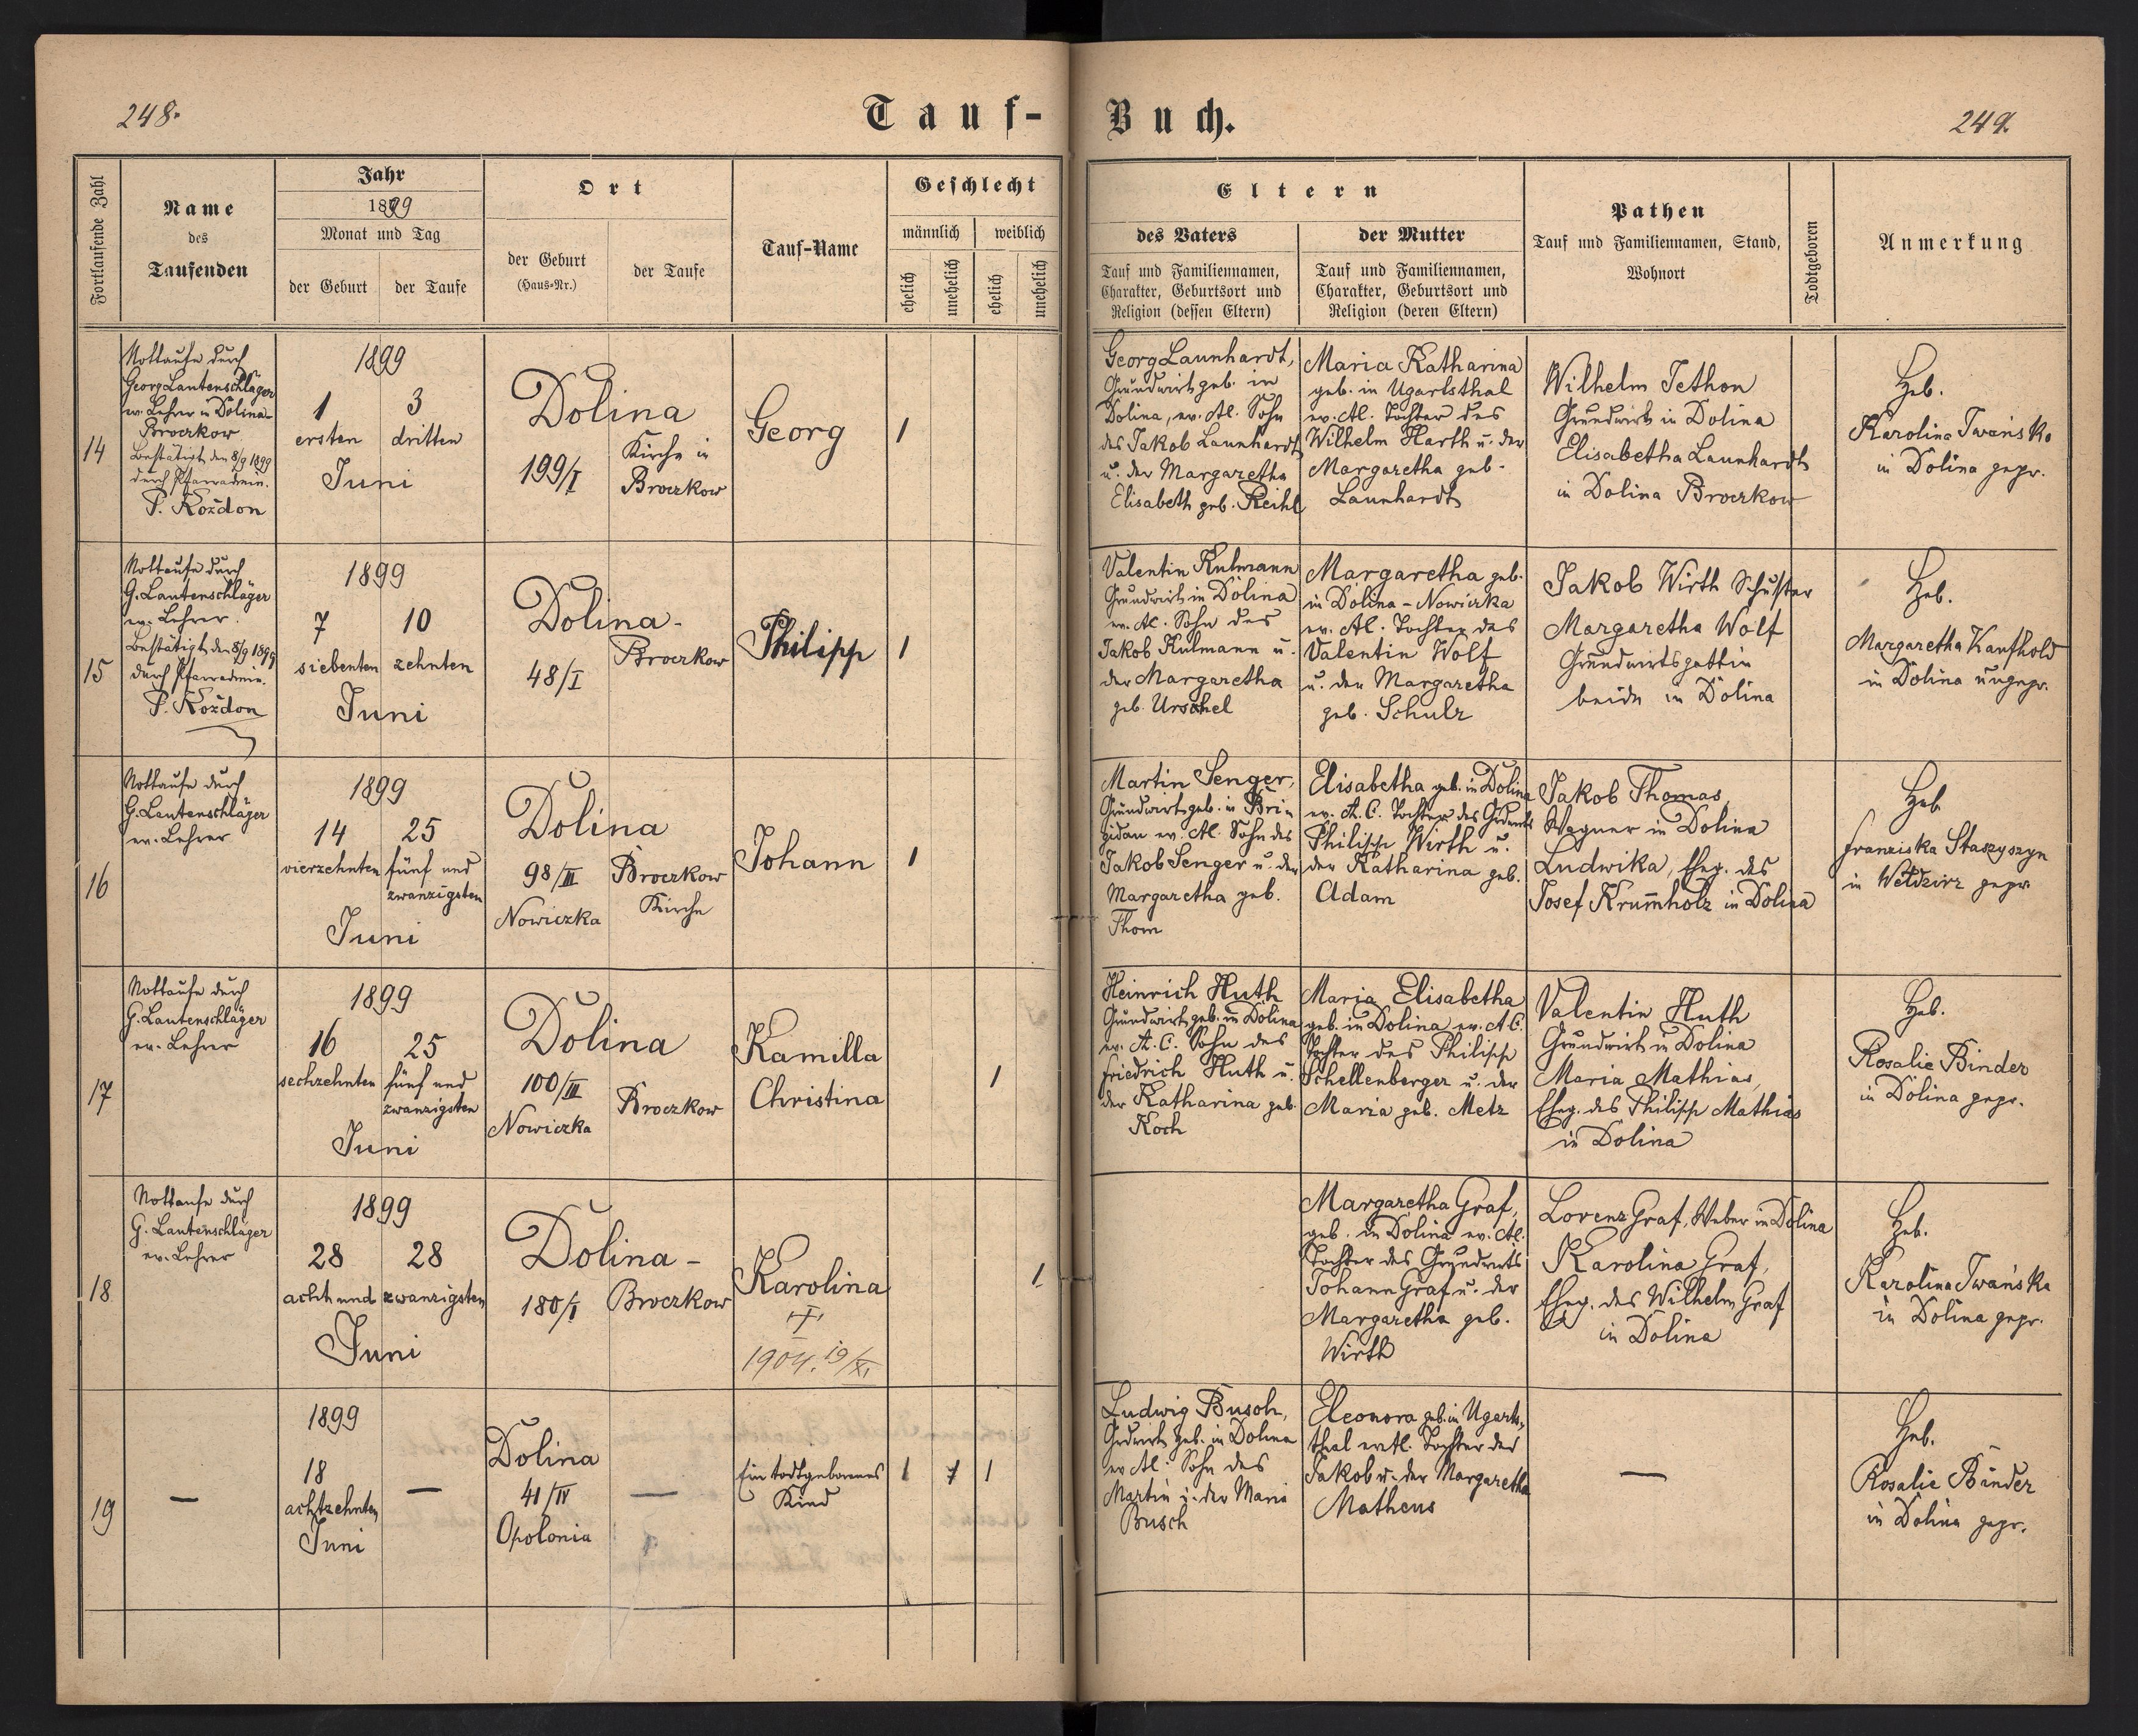 248.
Tauf-
Buch.
249.
Fortlaufende Zahl
Name
des
Taufenden
Jahr
1899
Monat und Tag
der Geburt
der Taufe
Ort
der Geburt
(Haus-Nr.)
der Taufe
Tauf-Name
Geschlecht
männlich
weiblich
ehelich
unehelich
ehelich
unehelich
Eltern
des Vaters
Tauf und Familiennamen,
Charakter, Geburtsort und
Religion (dessen Eltern)
der Mutter
Tauf und Familiennamen,
Charakter, Geburtsort und
Religion (deren Eltern)
Pathen
Tauf und Familiennamen, Stand,
Wohnort
Todtgeboren
Anmerkung
14
Nottaufe durch
Georg Lautenschläger
ev. Lehrer in Dolina-
Broczkow
Bestätigt den 8/9 1899
durch Pfarradmin.
P. Kożdon
1899
1
ersten
3
dritten
Juni
Dolina
199/I
Kirche in
Broczkow
Georg
1
Georg Launhardt,
Grundwirt geb. in
Dolina, ev. AC. Sohn
des Jakob Launhardt
u. der Margaretha
Elisabeth geb. Reihl
Maria Katharina
geb. in Ugartsthal
ev. AC. Tochter des
Wilhelm Harth u. der
Margaretha geb.
Launhardt
Wilhelm Jethon
Grundwirt in Dolina
Elisabetha Launhardt
in Dolina Broczkow
Heb.
Karolina Iwańska
in Dolina gepr.
15
Nottaufe durch
G. Lautenschläger
ev. Lehrer.
Bestätigt den 8/9 1899
durch Pfarradmin.
P. Kożdon
1899
7
siebenten
10
zehnten
Juni
Dolina-
48/I
Broczkow
Philipp
1
Valentin Kulmann
Grundwirt in Dolina
ev. AC. Sohn des
Jakob Kulmann u.
der Margaretha
geb. Urschel
Margaretha geb.
in Dolina-Nowiczka
ev. AC. Tochter des
Valentin Wolf
u. der Margaretha
geb. Schulz
Jakob Wirth Schuster
Margaretha Wolf
Grundwirtsgattin
beide in Dolina
Heb.
Margaretha Kaufhold
in Dolina ungepr.
16
Nottaufe durch
G. Lautenschläger
ev. Lehrer
1899
14
vierzehnten
25
fünf und
zwanzigsten
Juni
Dolina
98/III
Nowiczka
Broczkow
Kirche
Johann
1
Martin Senger,
Grundwirt geb. in Bri
gidau ev. AC. Sohn des
Jakob Senger u. der
Margaretha geb.
Thom
Elisabetha geb. in Dolina
ev. A.C. Tochter des Grdwts
Philipp Wirth u.
der Katharina geb.
Adam
Jakob Thomas
Wagner in Dolina
Ludwika, Eheg. des
Josef Krumholz in Dolina
Heb
Franziska Staszyszyn
in Wełdzirz gepr
17
Nottaufe durch
G. Lautenschläger
ev. Lehrer
1899
16
sechzehnten
25
fünf und
zwanzigsten
Juni
Dolina
100/III
Nowiczka
Broczkow
Kamilla
Christina
1
Heinrich Huth
Grundwirt geb. in Dolina
ev. A.C. Sohn des
Friedrich Huth u.
der Katharina geb.
Koch
Maria Elisabetha
geb. in Dolina ev. A.C.
Tochter des Philipp
Schellenberger u. der
Maria geb. Metz
Valentin Huth
Grundwirt in Dolina
Maria Mathias,
Eheg. des Philipp Mathias
in Dolina
Heb.
Rosalie Binder
in Dolina gepr.
18
Nottaufe durch
G. Lautenschläger
ev. Lehrer
1899
28
28
acht und zwanzigsten
Juni
Dolina-
180/I
Broczkow
Karolina
†
1904. 19/XI
1
Margaretha Graf,
geb. in Dolina ev. AC.
Tochter des Grundwirts
Johann Graf u. der
Margaretha geb.
Wirth
Lorenz Graf, Weber in Dolina
Karolina Graf,
Eheg. des Wilhelm Graf
in Dolina
Heb.
Karolina Iwańska
in Dolina gepr.
19
—
1899
18
achtzehnten
Juni
—
Dolina
41/IV
Opolonia
—
Ein todtgeborenes
Kind
1
1
1
Ludwig Busch,
Grdwirt geb. in Dolina
ev AC. Sohn des
Martin u. der Maria
Busch
Eleonora geb. in Ugarts-
thal ev AC. Tochter des
Jakob u. der Margaretha
Matheus
—
Heb.
Rosalie Binder
in Dolina gepr.